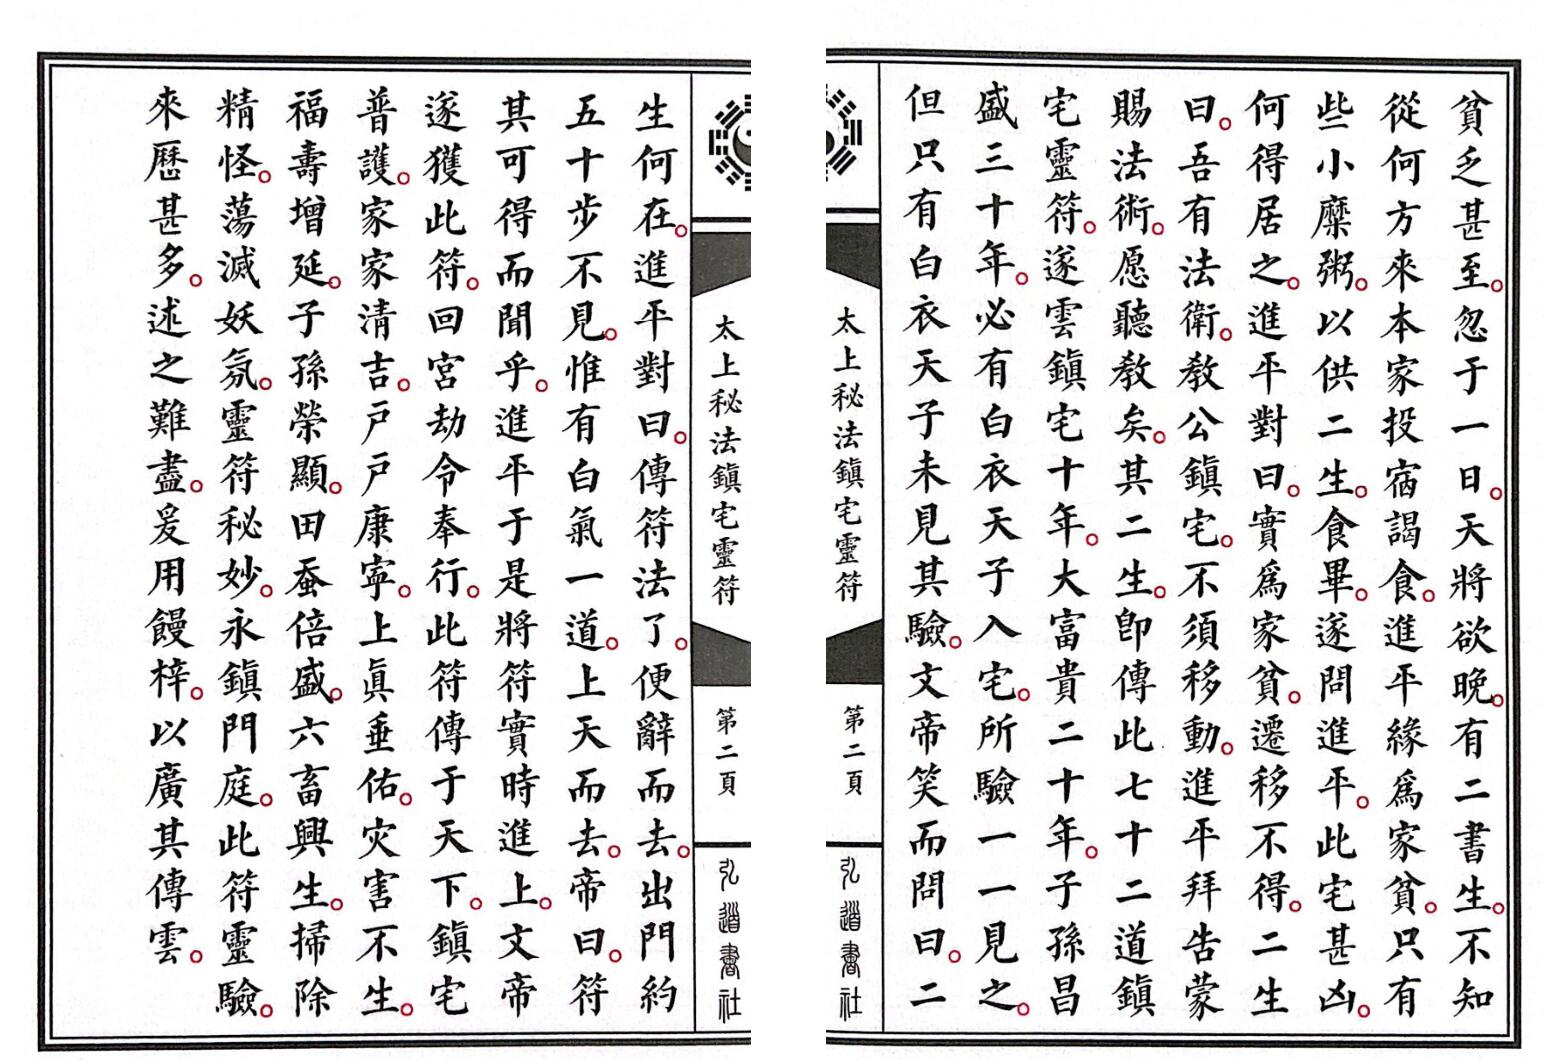 貧乏甚至。忽于一日。天將欲晚。有二書生。不知
從何方來本家投宿謁食。進平緣爲家貧。只有
些小糜粥。以供二生。食畢。遂問進平。此宅甚凶。
何得居之。進平對曰。實爲家貧。遷移不得。二生
曰。吾有法衛。教公鎮宅。不須移動。進平拜告蒙
賜法術。愿聽教矣。其二生。卽傳此七十二道鎮
宅靈符。遂雲鎮宅十年。大富貴二十年。子孫昌
盛三十年。必有白衣天子入宅。所驗一一見之。
但只有白衣天子未見其驗。文帝笑而問曰。二
太上秘法鎮宅靈符
第二頁
弘道書社
太上秘法鎮宅靈符
第二頁
弘道書社
生何在。進平對曰。傳符法了。便辭而去。出門約
五十步不見。惟有白氣一道。上天而去。帝曰。符
其可得而聞乎。進平于是將符實時進上。文帝
遂獲此符。回宮劫令奉行。此符傳于天下。鎮宅
普護。家家清吉。戸戸康寧。上眞垂佑。灾害不生。
福壽增延。子孫榮顯。田蚕倍盛。六畜興生。掃除
精怪。蕩滅妖氛。靈符秘妙。永鎮門庭。此符靈驗。
來歷甚多。述之難盡。爰用饅梓。以廣其傳雲。